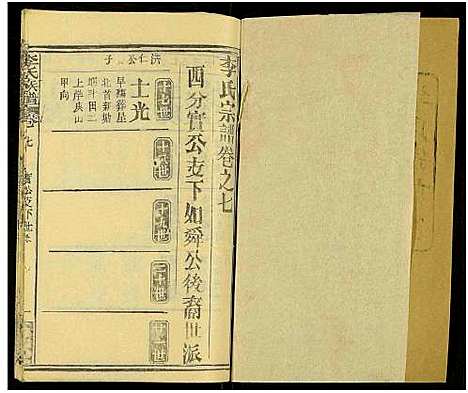 李氏宗譜卷之七
西分實公支下如舜公後裔世派
十七世
十八世
十九世
二十世
廿一世
洪仁公子
士光
早殤葬星
北首新塘
塘斗田二
上岸艮山
甲向
李氏族譜
卷七
實公支下世系